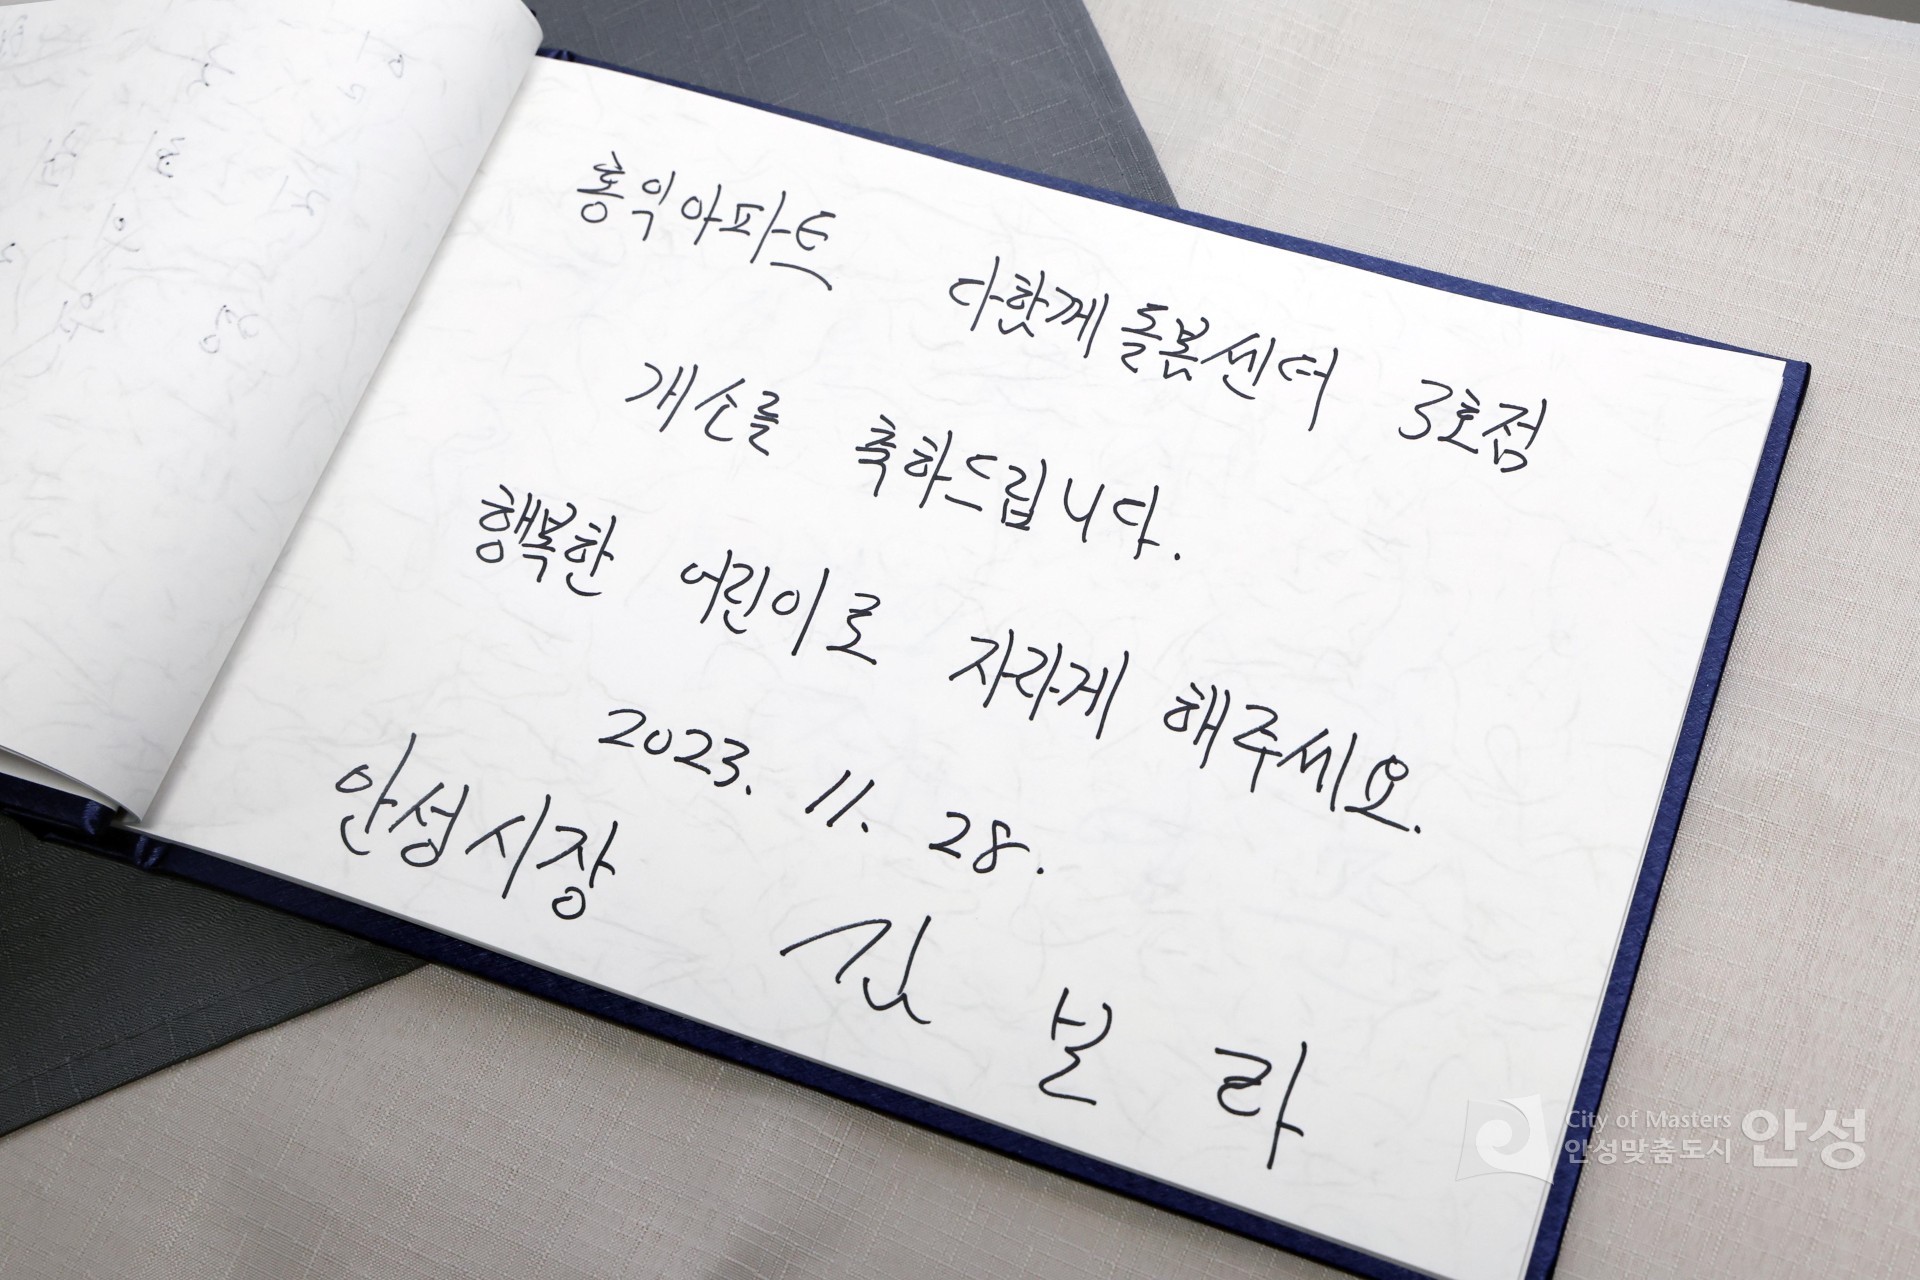 홍익아파트 다함께돌봄센터 3호점
개소를 축하드립니다.
행복한 어린이로 자라게 해주세요.
2023. 11. 28.
안성시장 김보라
City of Masters
안성맞춤도시 안성